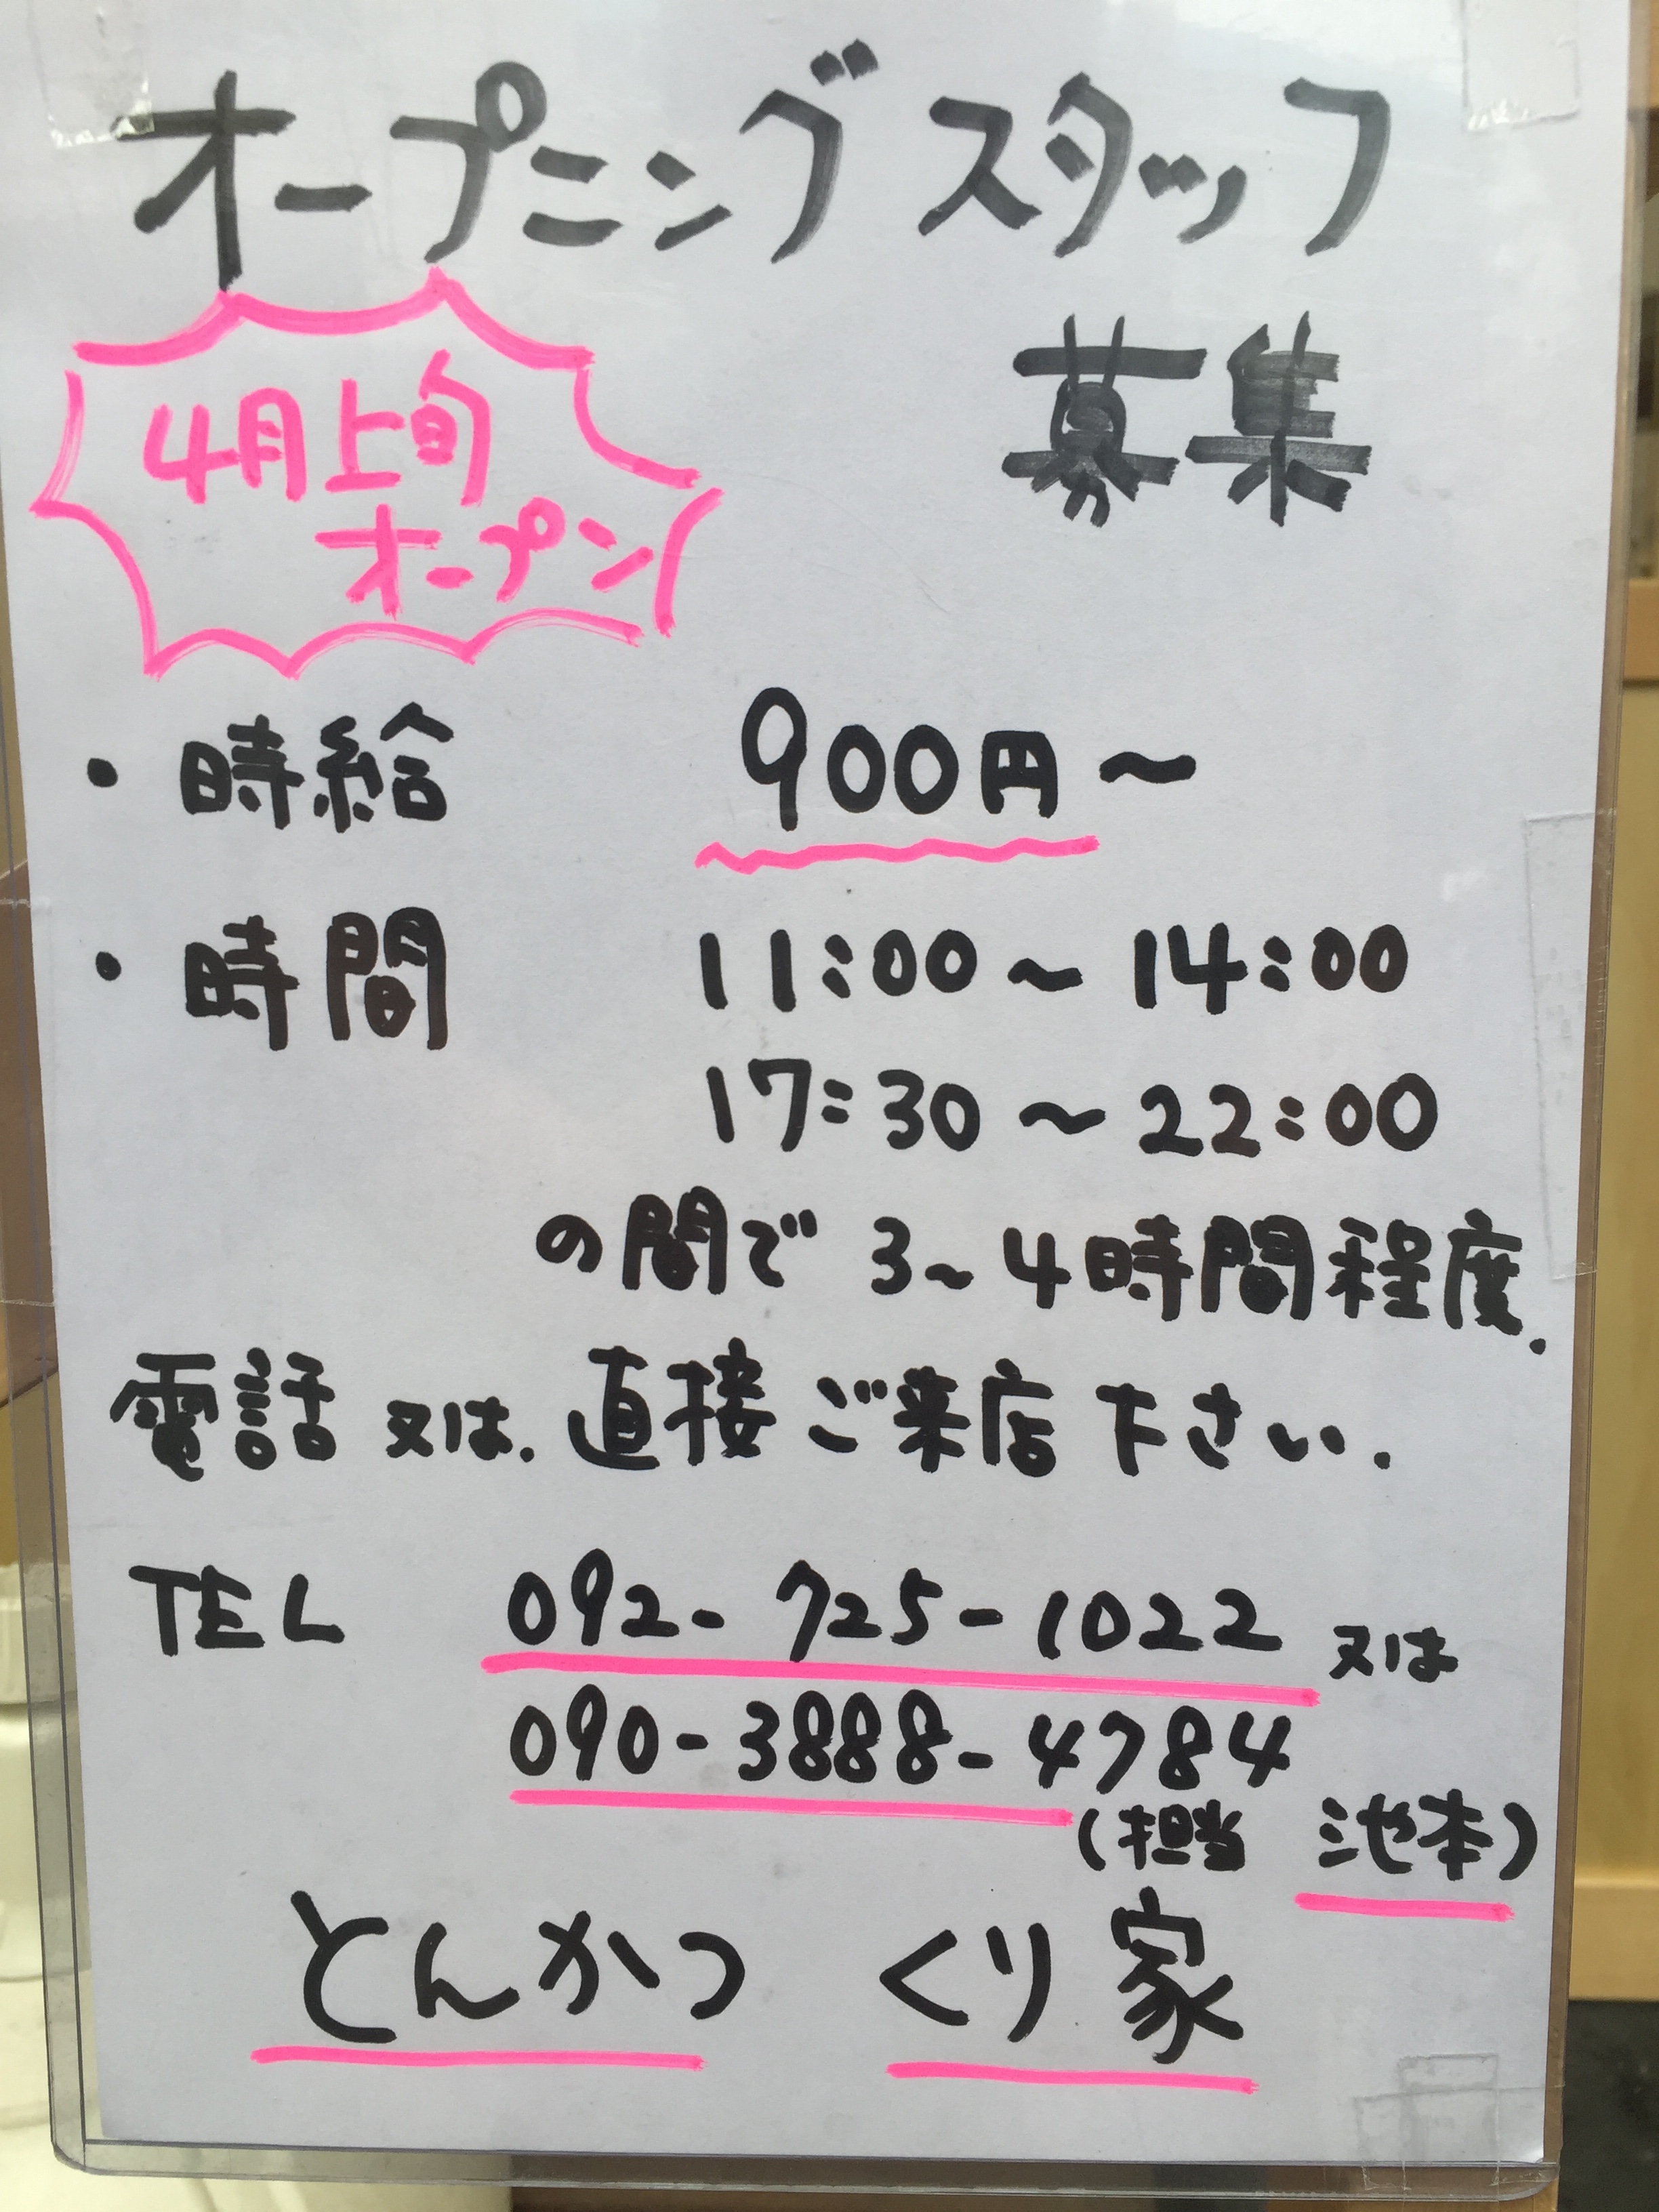 オープニングスタッフ
募集
4月上旬
オープン
・時給 900円〜
・時間 11:00〜14:00
17:30〜22:00
の間で 3〜4時間程度.
電話 又は. 直接 ご来店 下さい.
TEL 092-725-1022 又は
090-3888-4784
(担当 池本)
とんかつ くり家